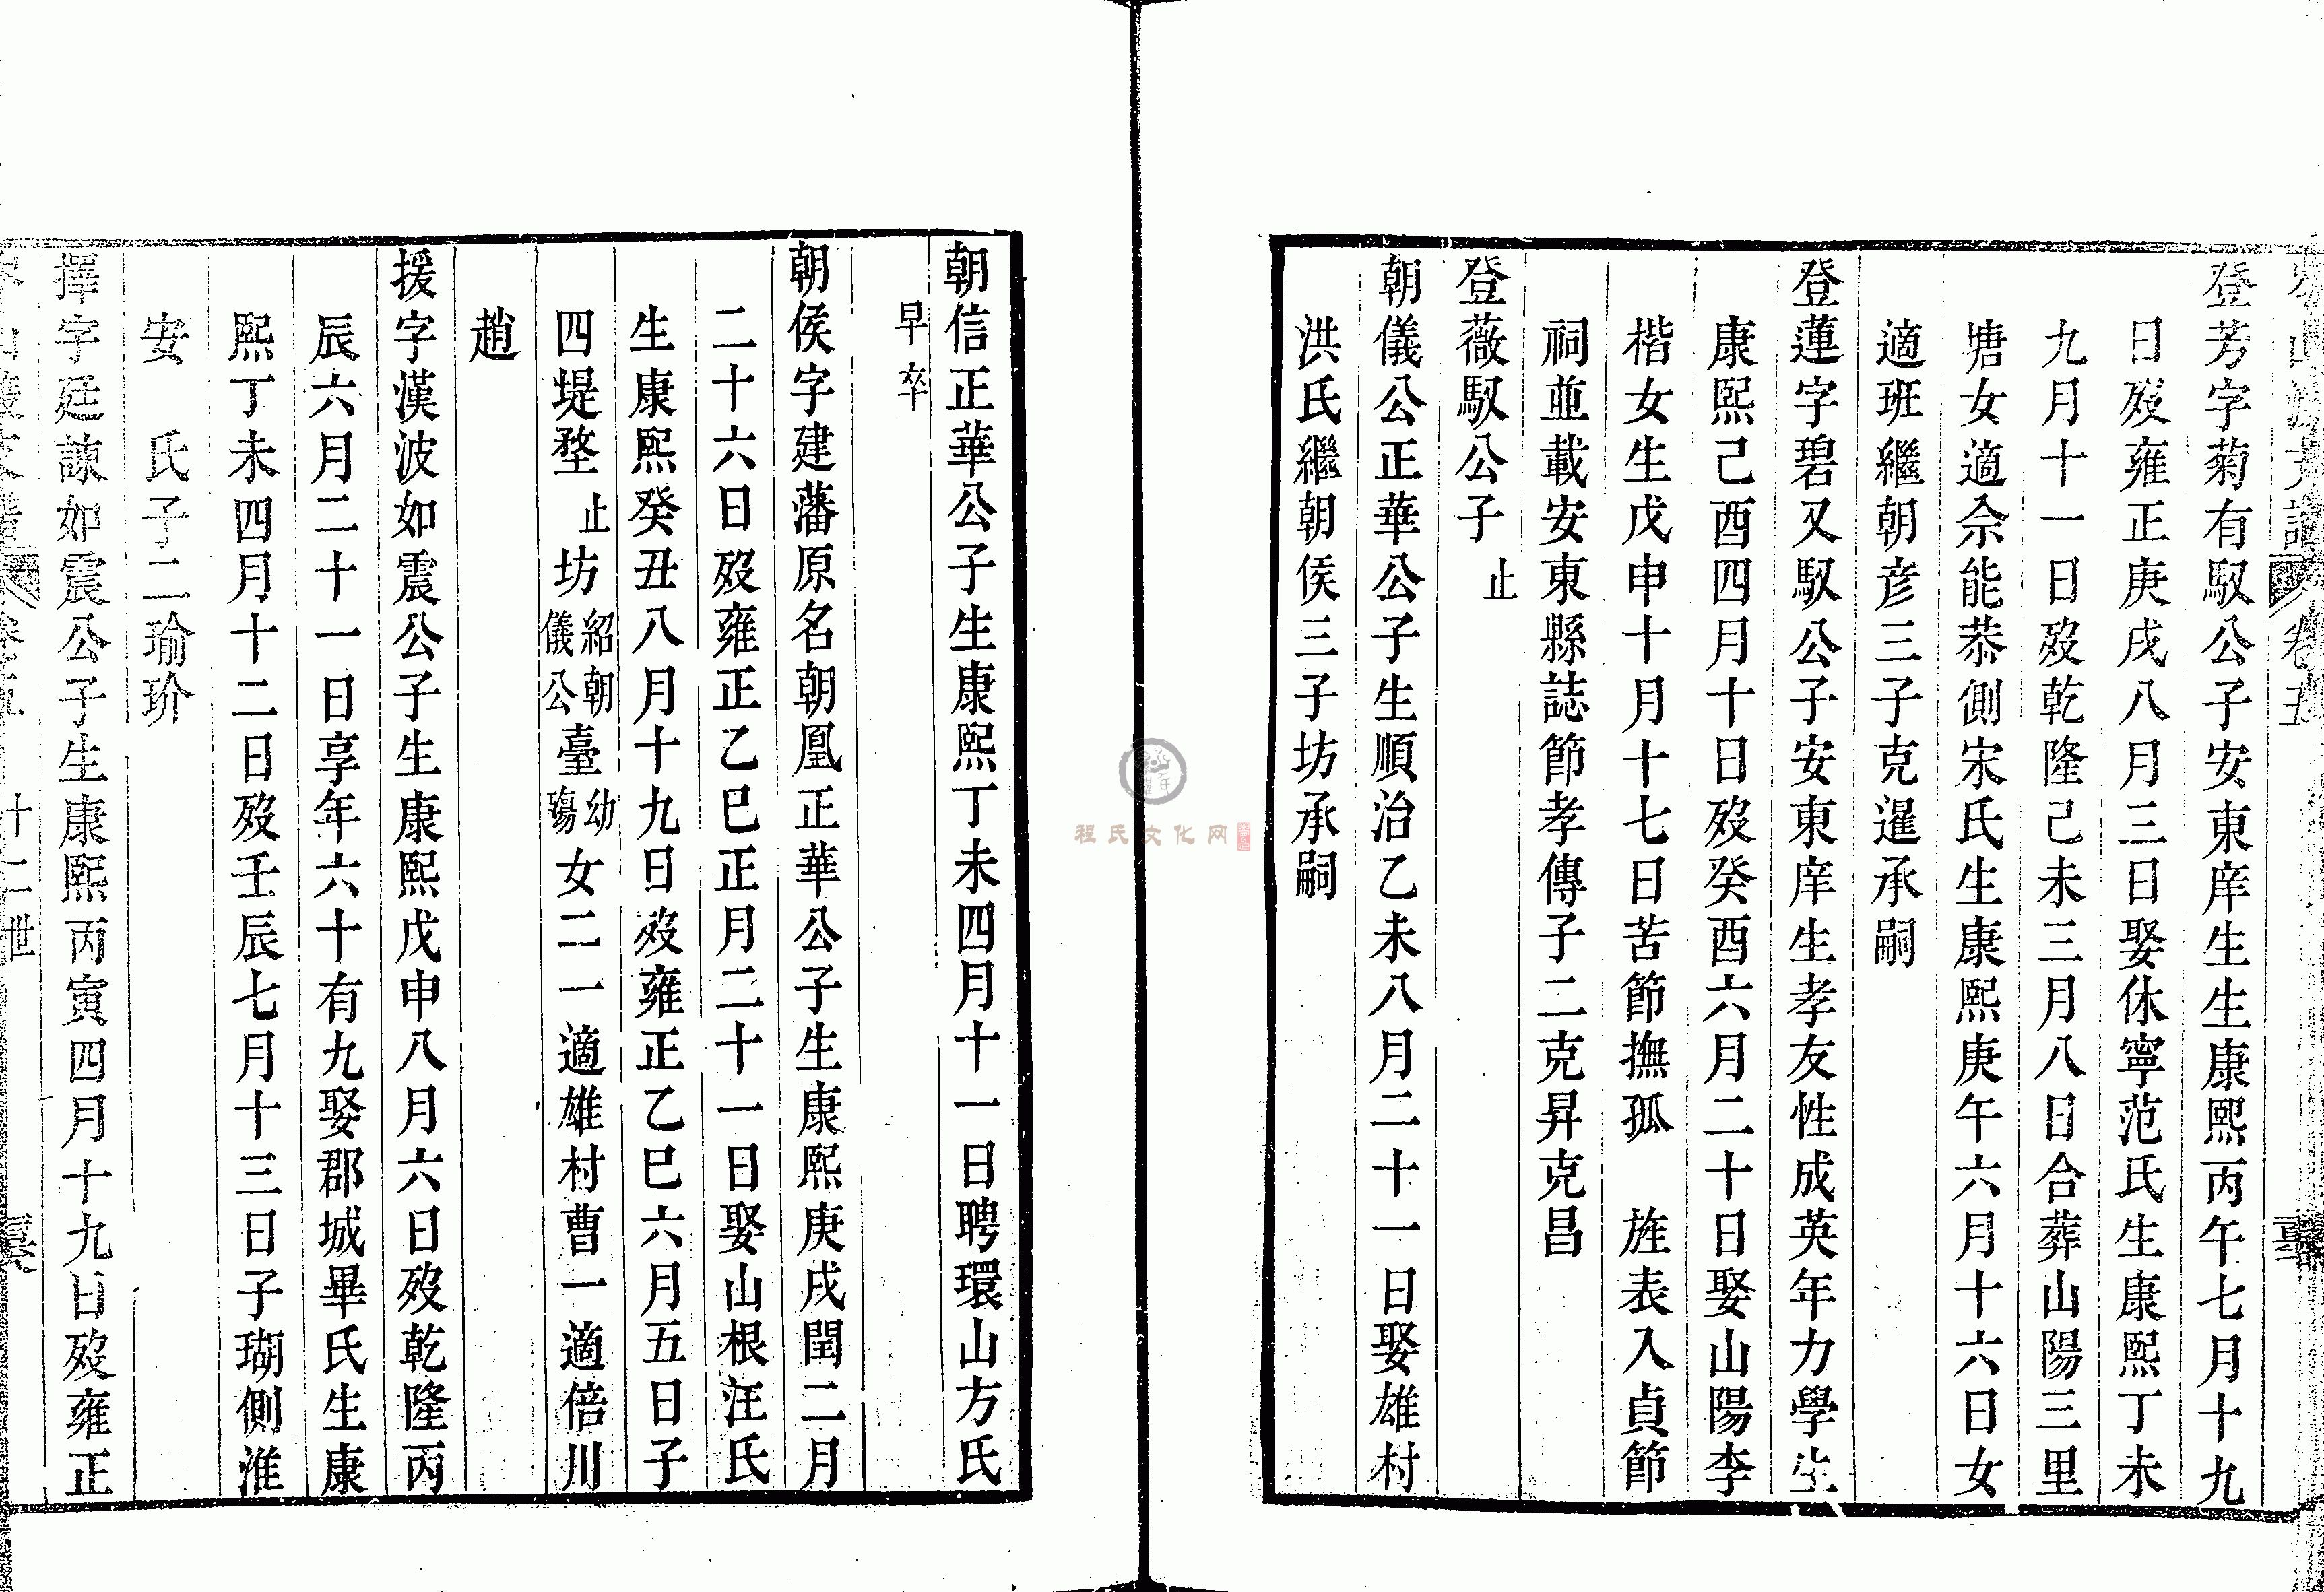 登芳字菊有馭公子安東庠生生康熙丙午七月十九
日歿雍正庚戌八月三日娶休寧范氏生康熙丁未
九月十一日歿乾隆己未三月八日合葬山陽三里
塘女適佘能恭側宋氏生康熙庚午六月十六日女
適班繼朝彦三子克暹承嗣
登蓮字碧又馭公子安東庠生孝友性成英年力學生
康熙己酉四月十日歿癸酉六月二十日娶山陽李
楷女生戊申十月十七日苦節撫孤　旌表入貞節
祠並載安東縣誌節孝傳子二克昇克昌
登薇馭公子止
朝儀公正華公子生順治乙未八月二十一日娶雄村
洪氏繼朝侯三子坊承嗣
程氏文化网
朝信正華公子生康熙丁未四月十一日聘環山方氏
早卒
朝侯字建藩原名朝凰正華公子生康熙庚戌閏二月
二十六日歿雍正乙巳正月二十一日娶山根汪氏
生康熙癸丑八月十九日歿雍正乙巳六月五日子
四堤堥止坊紹朝儀公臺幼殤女二一適雄村曹一適倍川
趙
援字漢波如震公子生康熙戊申八月六日歿乾隆丙
辰六月二十一日享年六十有九娶郡城畢氏生康
熙丁未四月十二日歿壬辰七月十三日子瑚側淮
安　氏子二瑜玠
擇字廷諫如震公子生康熙丙寅四月十九日歿雍正
十二世